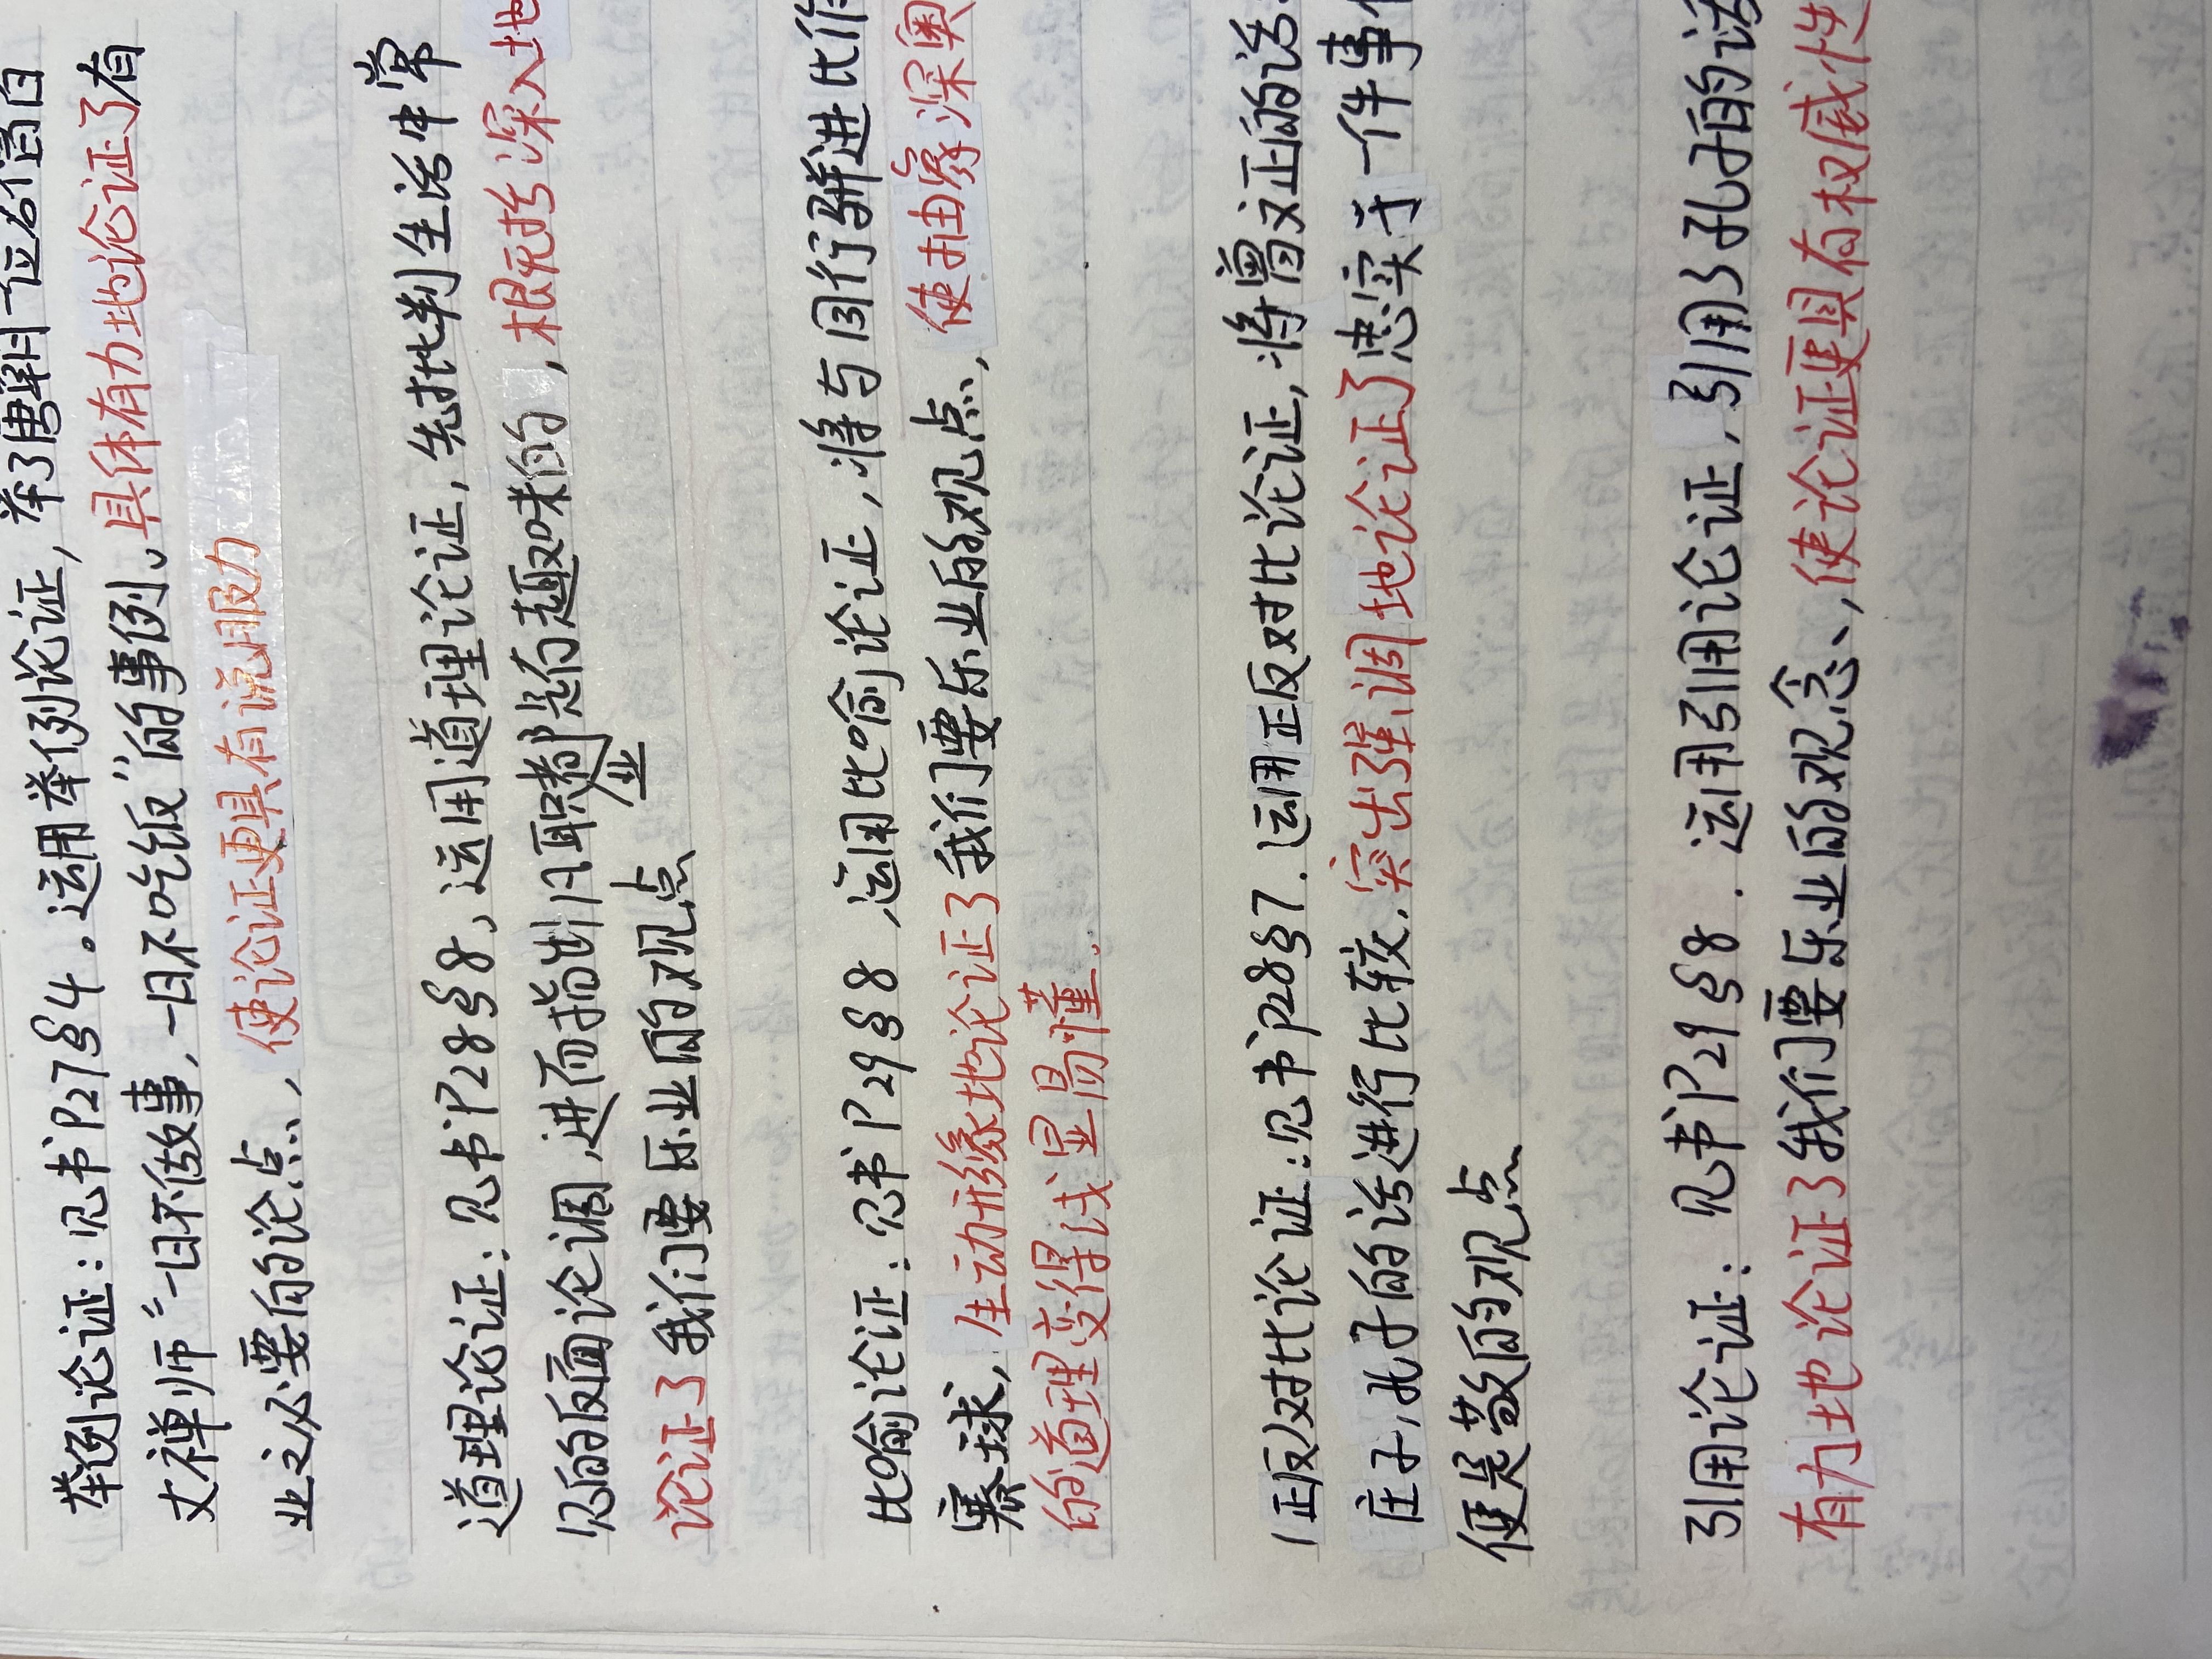 举例论证：见书P27§4。运用举例论证，举了唐朝一位名僧百
丈禅师“一日不做事，一日不吃饭”的事例。具体有力地论证了有
业之必要的论点，使论证更具有说服力
道理论证：见书P28§8，运用道理论证，先批判生活中常
见的反面论调，进而指出凡职业都是有趣味的，根深入地
论证了我们要乐业的观点
比喻论证：见书P29§8，运用比喻论证，将与同行骈进比作
赛球，生动形象地论证了我们要乐业的观点，使抽象深奥
的道理变得浅显易懂。
正反对比论证：见书P28§7.运用正反对比论证，将曾文正的话
庄子，孔子的话进行比较，突出强调地论证了忠实于一件事
便是敬的观点
引用论证：见书P29§8.运用引用论证，引用了孔子的话
有力地论证了我们要乐业的观念、，使论证更具有权威性